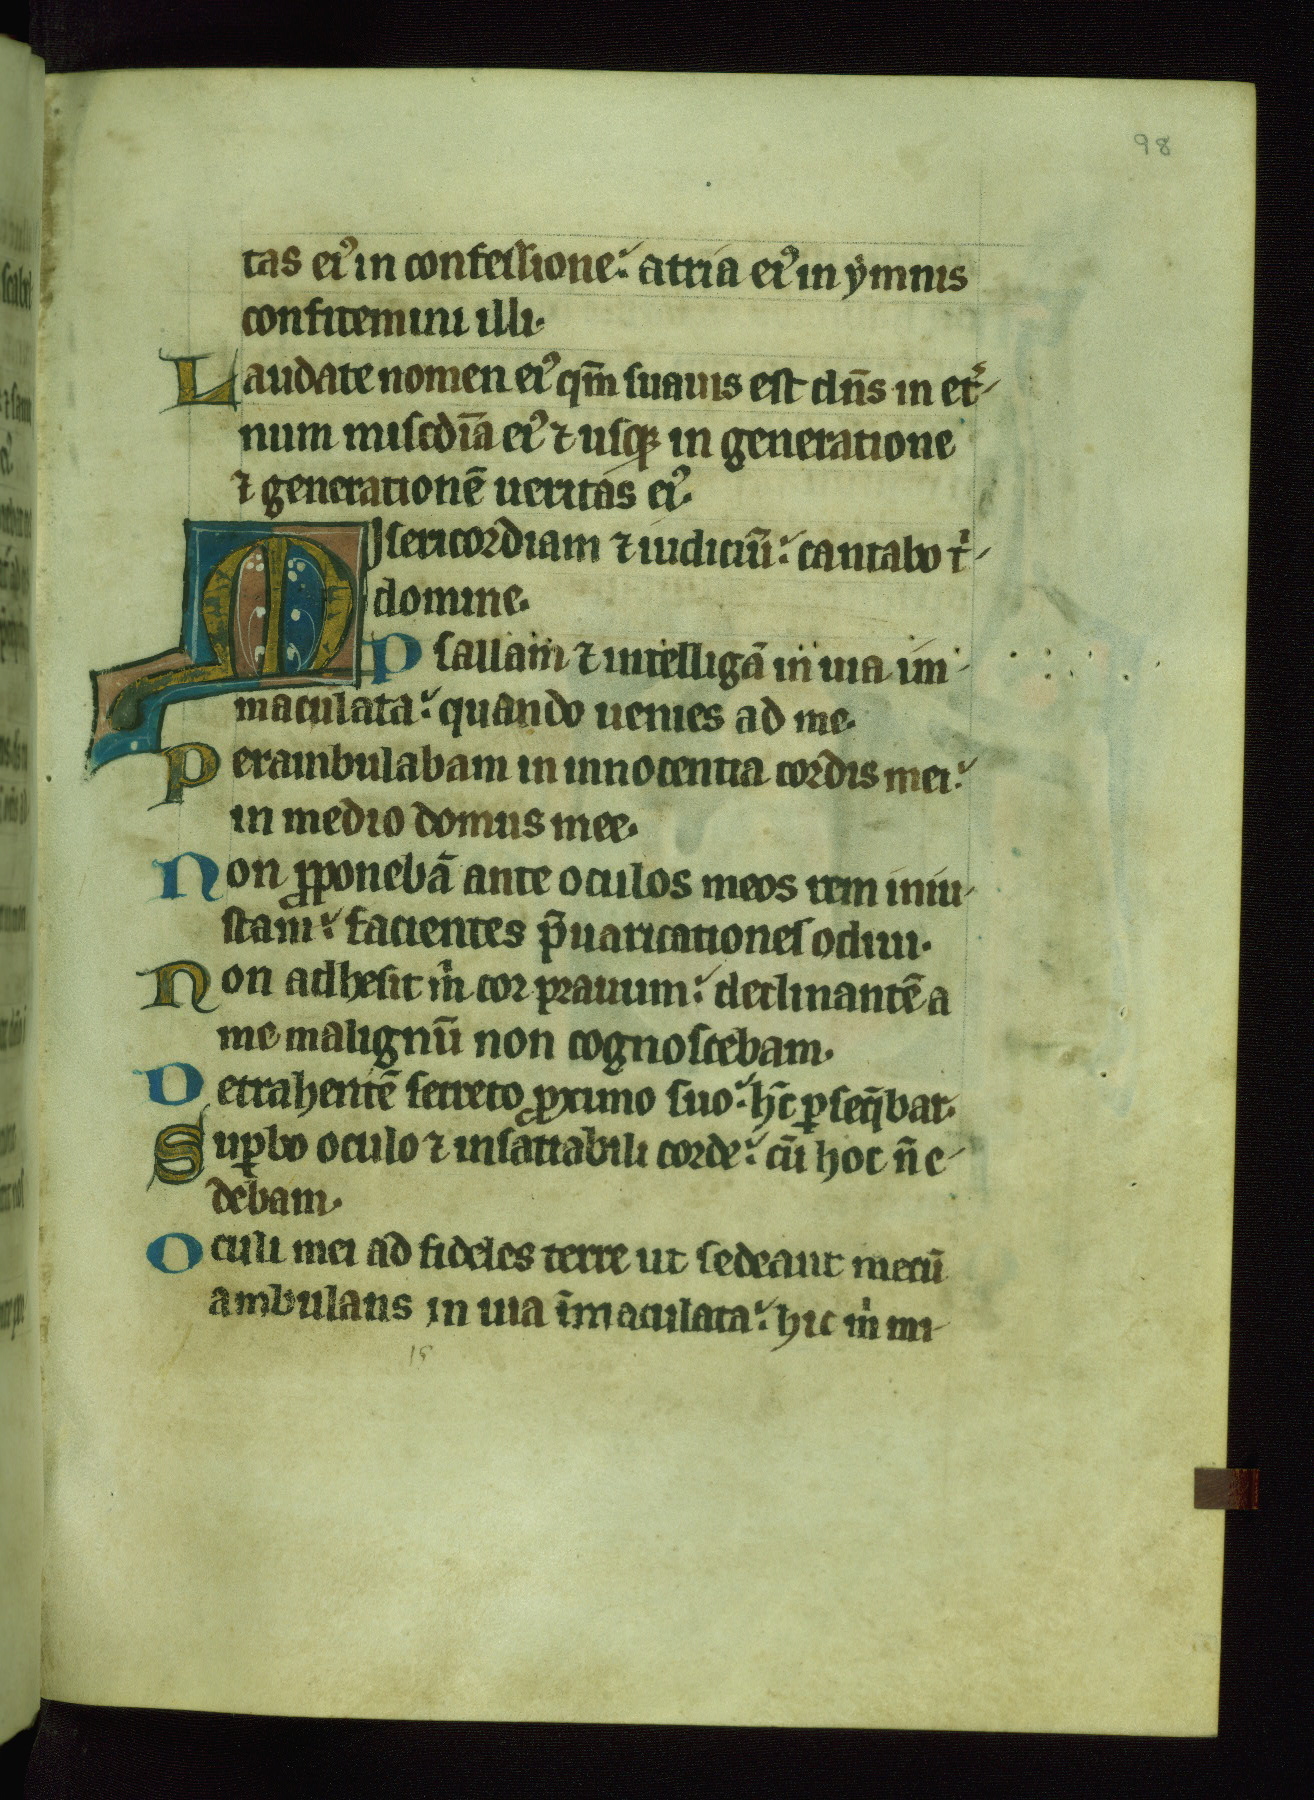 98
tas eiꝰ in confessione: atria eiꝰ in ymnis
confitemini illi.
Laudate nomen eiꝰ qm̄ suauis est dn̄s in et̾-
num miscd̄ia eiꝰ ⁊ usq; in generatione
⁊ generationē ueritas eiꝰ.
Misericordiam ⁊ iudiciū: cantabo t̍-
domine.
Psallam ⁊ intelligā in uia im-
maculata: quando uenies ad me.
Perambulabam in innocentia cordis mei:
in medio domus mee.
Non ꝓponebā ante oculos meos rem iniu-
stam: facientes p̄uaricationes odiui.
Non adhesit m̍ cor prauum: declinantē a
me malignū non cognoscebam.
Detrahentē secreto ꝓximo suo: hc̄ ꝑseq̄bar.
Suꝑbo oculo ⁊ insatiabili corde: cū hoc n̄ e-
debam.
Oculi mei ad fideles terre ut sedeant mecū
ambulans in uia īmaculata: hic m̍ mi-